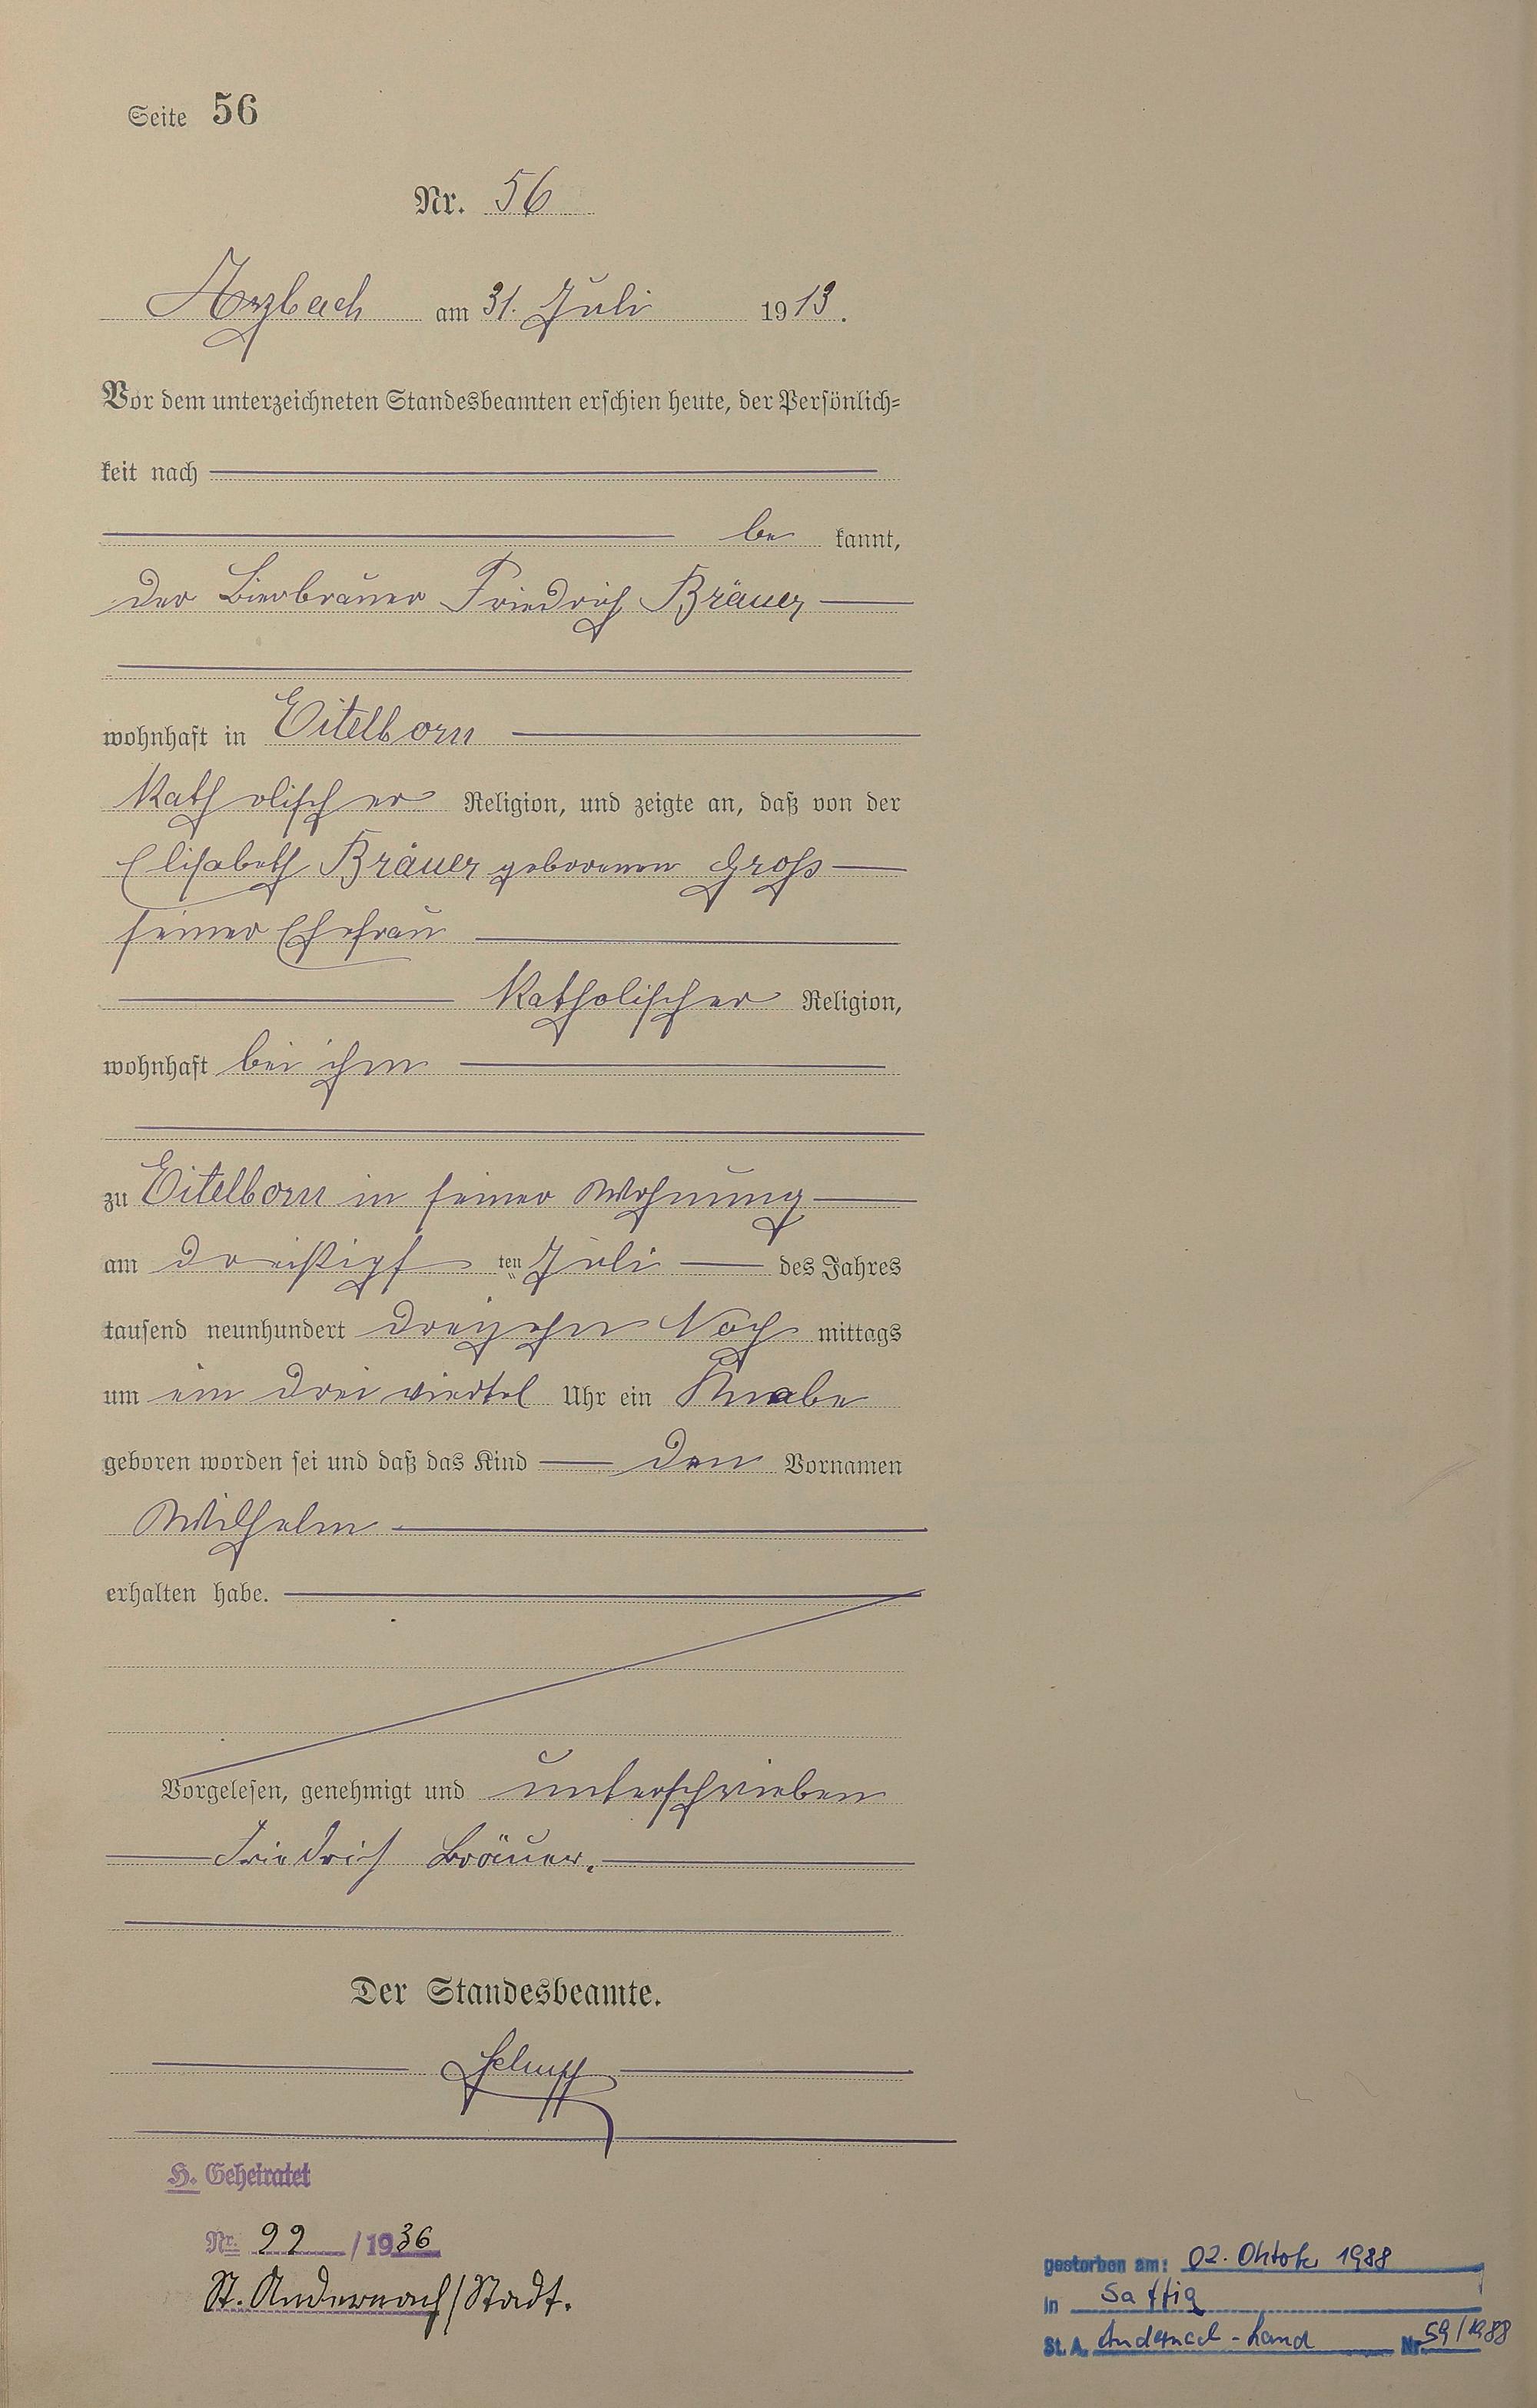 Seite 56
Nr. 56
Arzbach am 31. Juli 1913.
Vor dem unterzeichneten Standesbeamten erschien heute, der Persönlich=
keit nach
be kannt,
der Bierbrauer Friedrich Bräuer
wohnhaft in Eitelborn
katholischer Religion, und zeigte an, daß von der
Elisabeth Bräuer geborenen Groß
seiner Ehefrau
katholischer Religion,
wohnhaft bei ihm
zu Eitelborn in seiner Wohnung
am dreißigsten Juli des Jahres
tausend neunhundert dreizehn Nach mittags
um ein drei viertel Uhr ein Knabe
geboren worden sei und daß das Kind den Vornamen
Wilhelm
erhalten habe.
Vorgelesen, genehmigt und unterschrieben
Friedrich Bräuer.
Der Standesbeamte.
H. Geheiratet
Nr. 22 /1936
St. Andernach/Stadt.
gestorben am: 02. Oktober 1988
in Saffig
St. A. Andernach-Land Nr. 59/1988